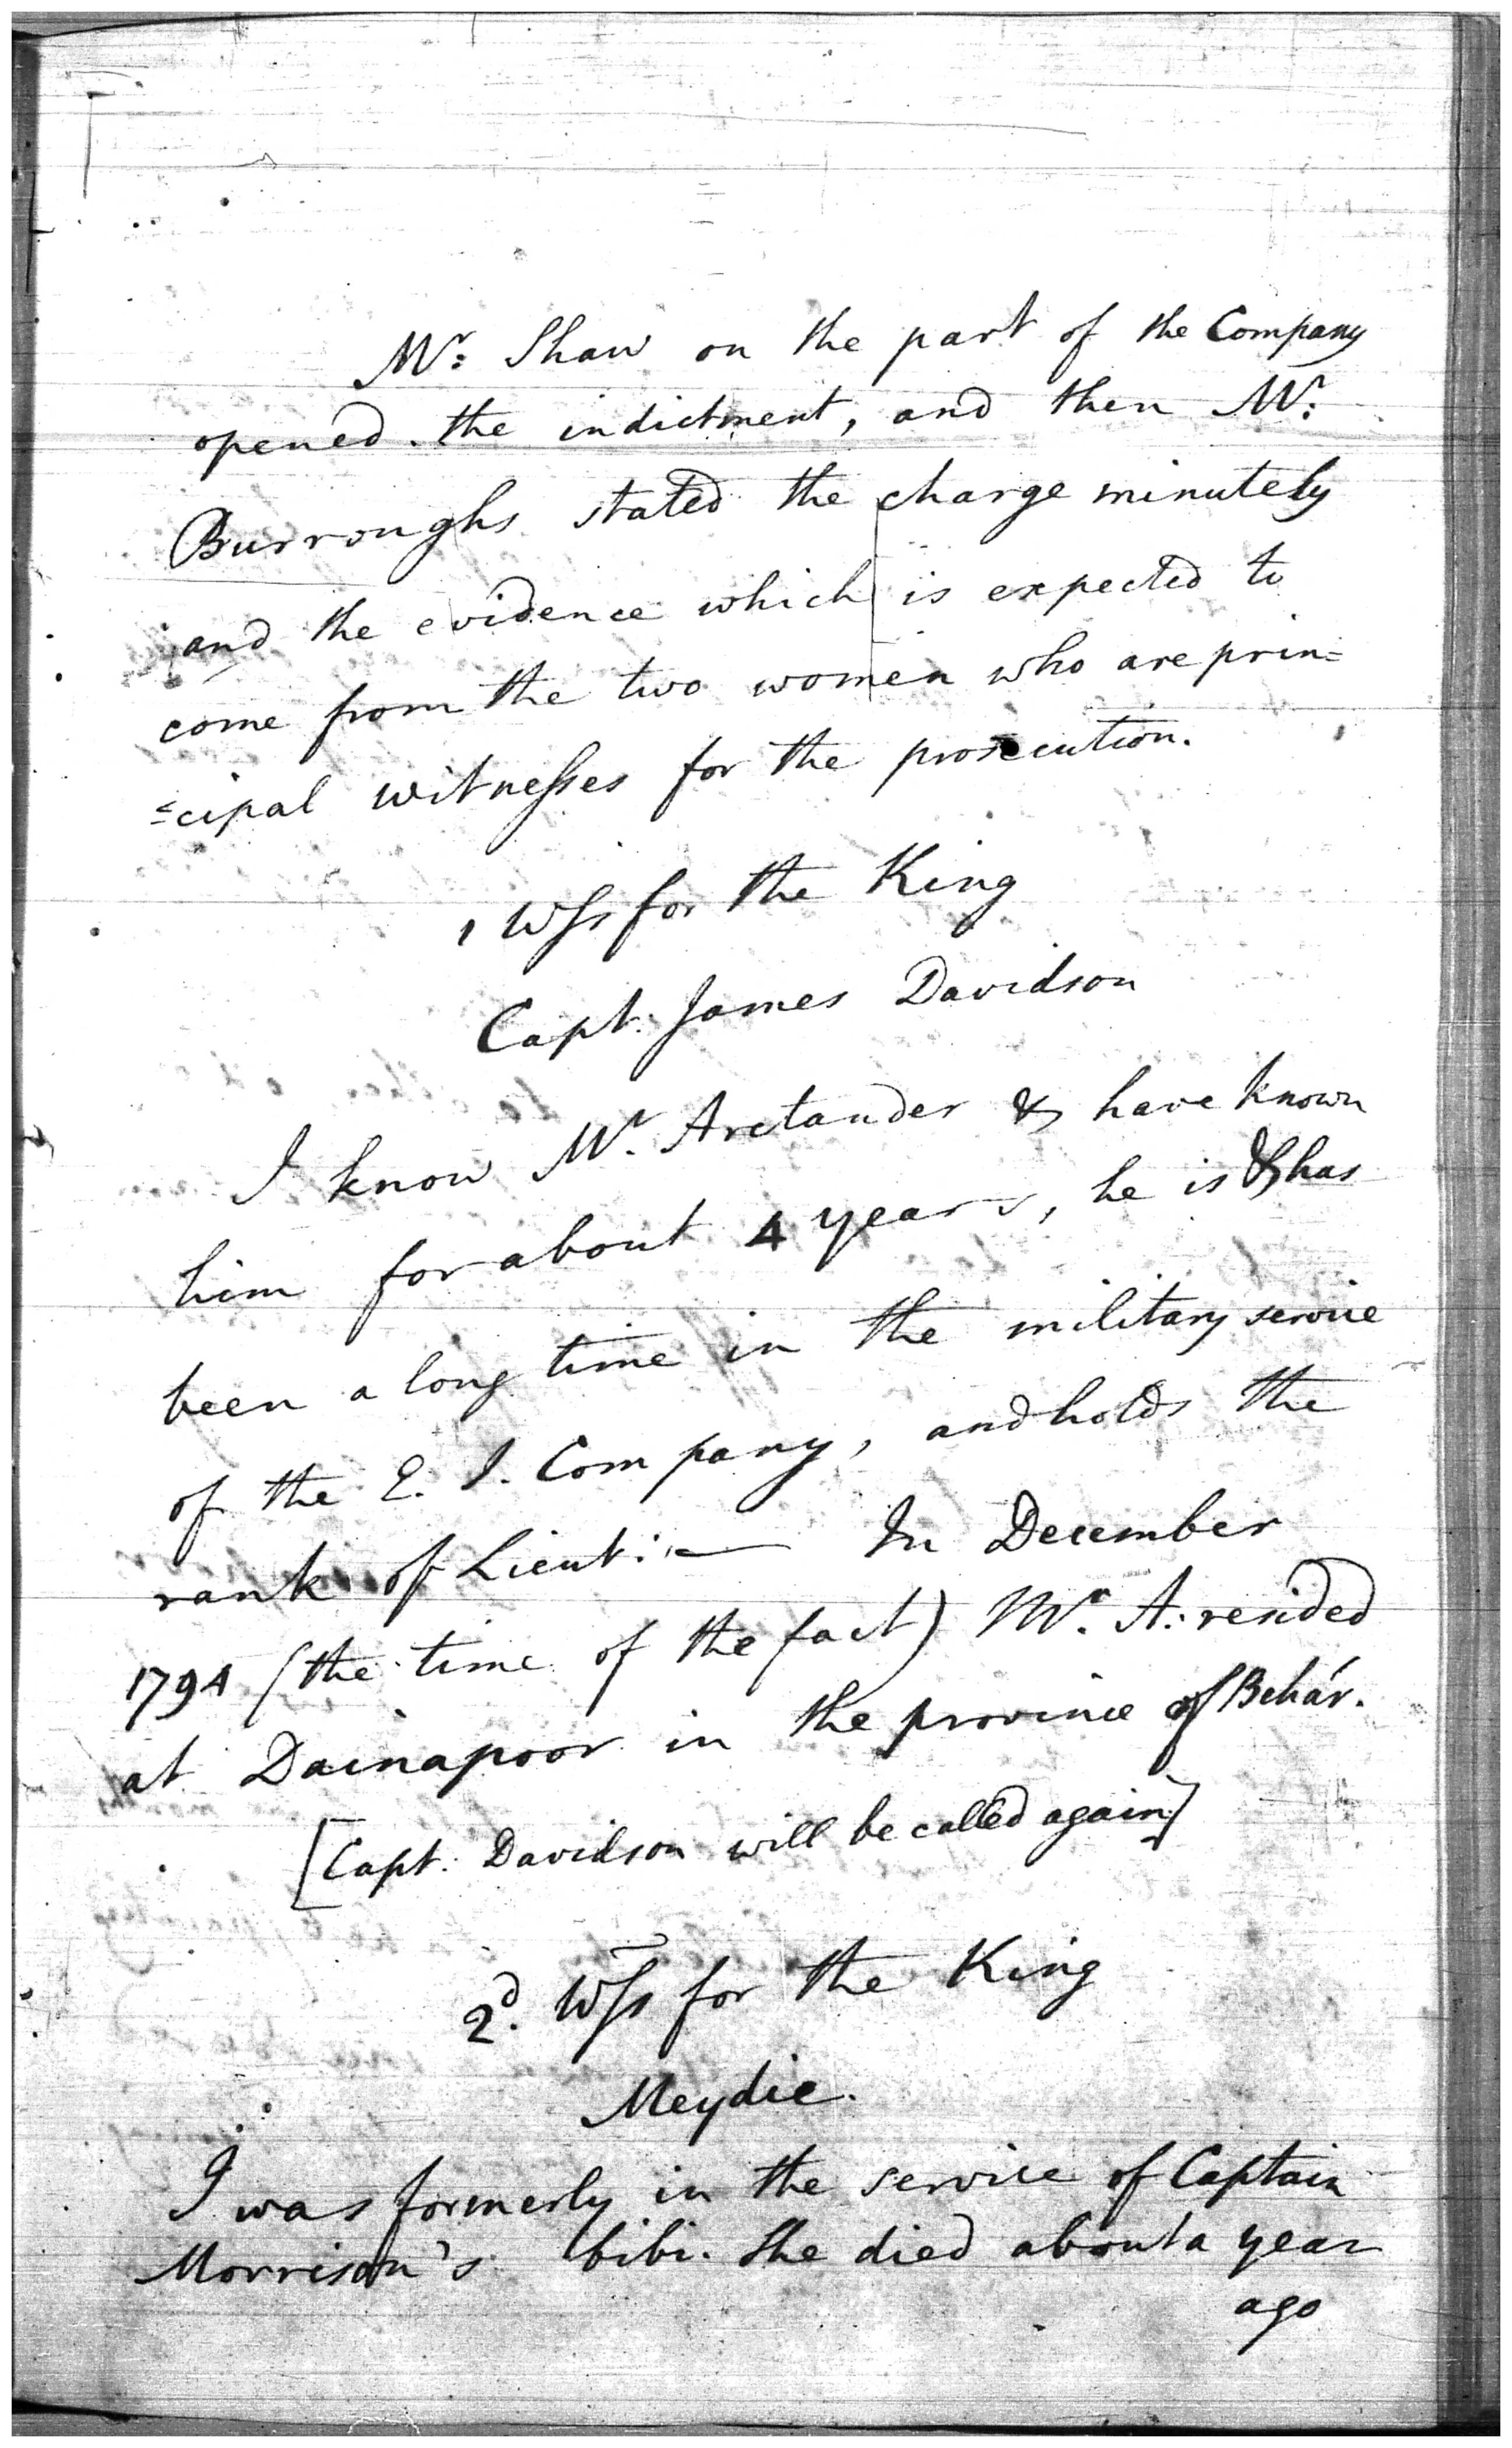 Mr: Shaw on the part of the Company
opened the indictment, and then Mr:
Burroughs stated the charge minutely
and the evidence which is expected to
come from the two women who are prin=
=cipal witnesses for the prosecution.
1 Wss for the King
Capt. James Davidson
I know Mr. Arctander & have known
him for about 4 years, he is & has
been a long time in the military service
of the E. I. Company, and holds the
rank of Lieut: — In December
1794 (the time of the fact) Mr. A: resided
at Dainapoor in the province of Behár.
[Capt. Davidson will be called again]
2d. Wss for the King
Meydie.
I was formerly in the service of Captain
Morrison's bibi. She died about a year
ago